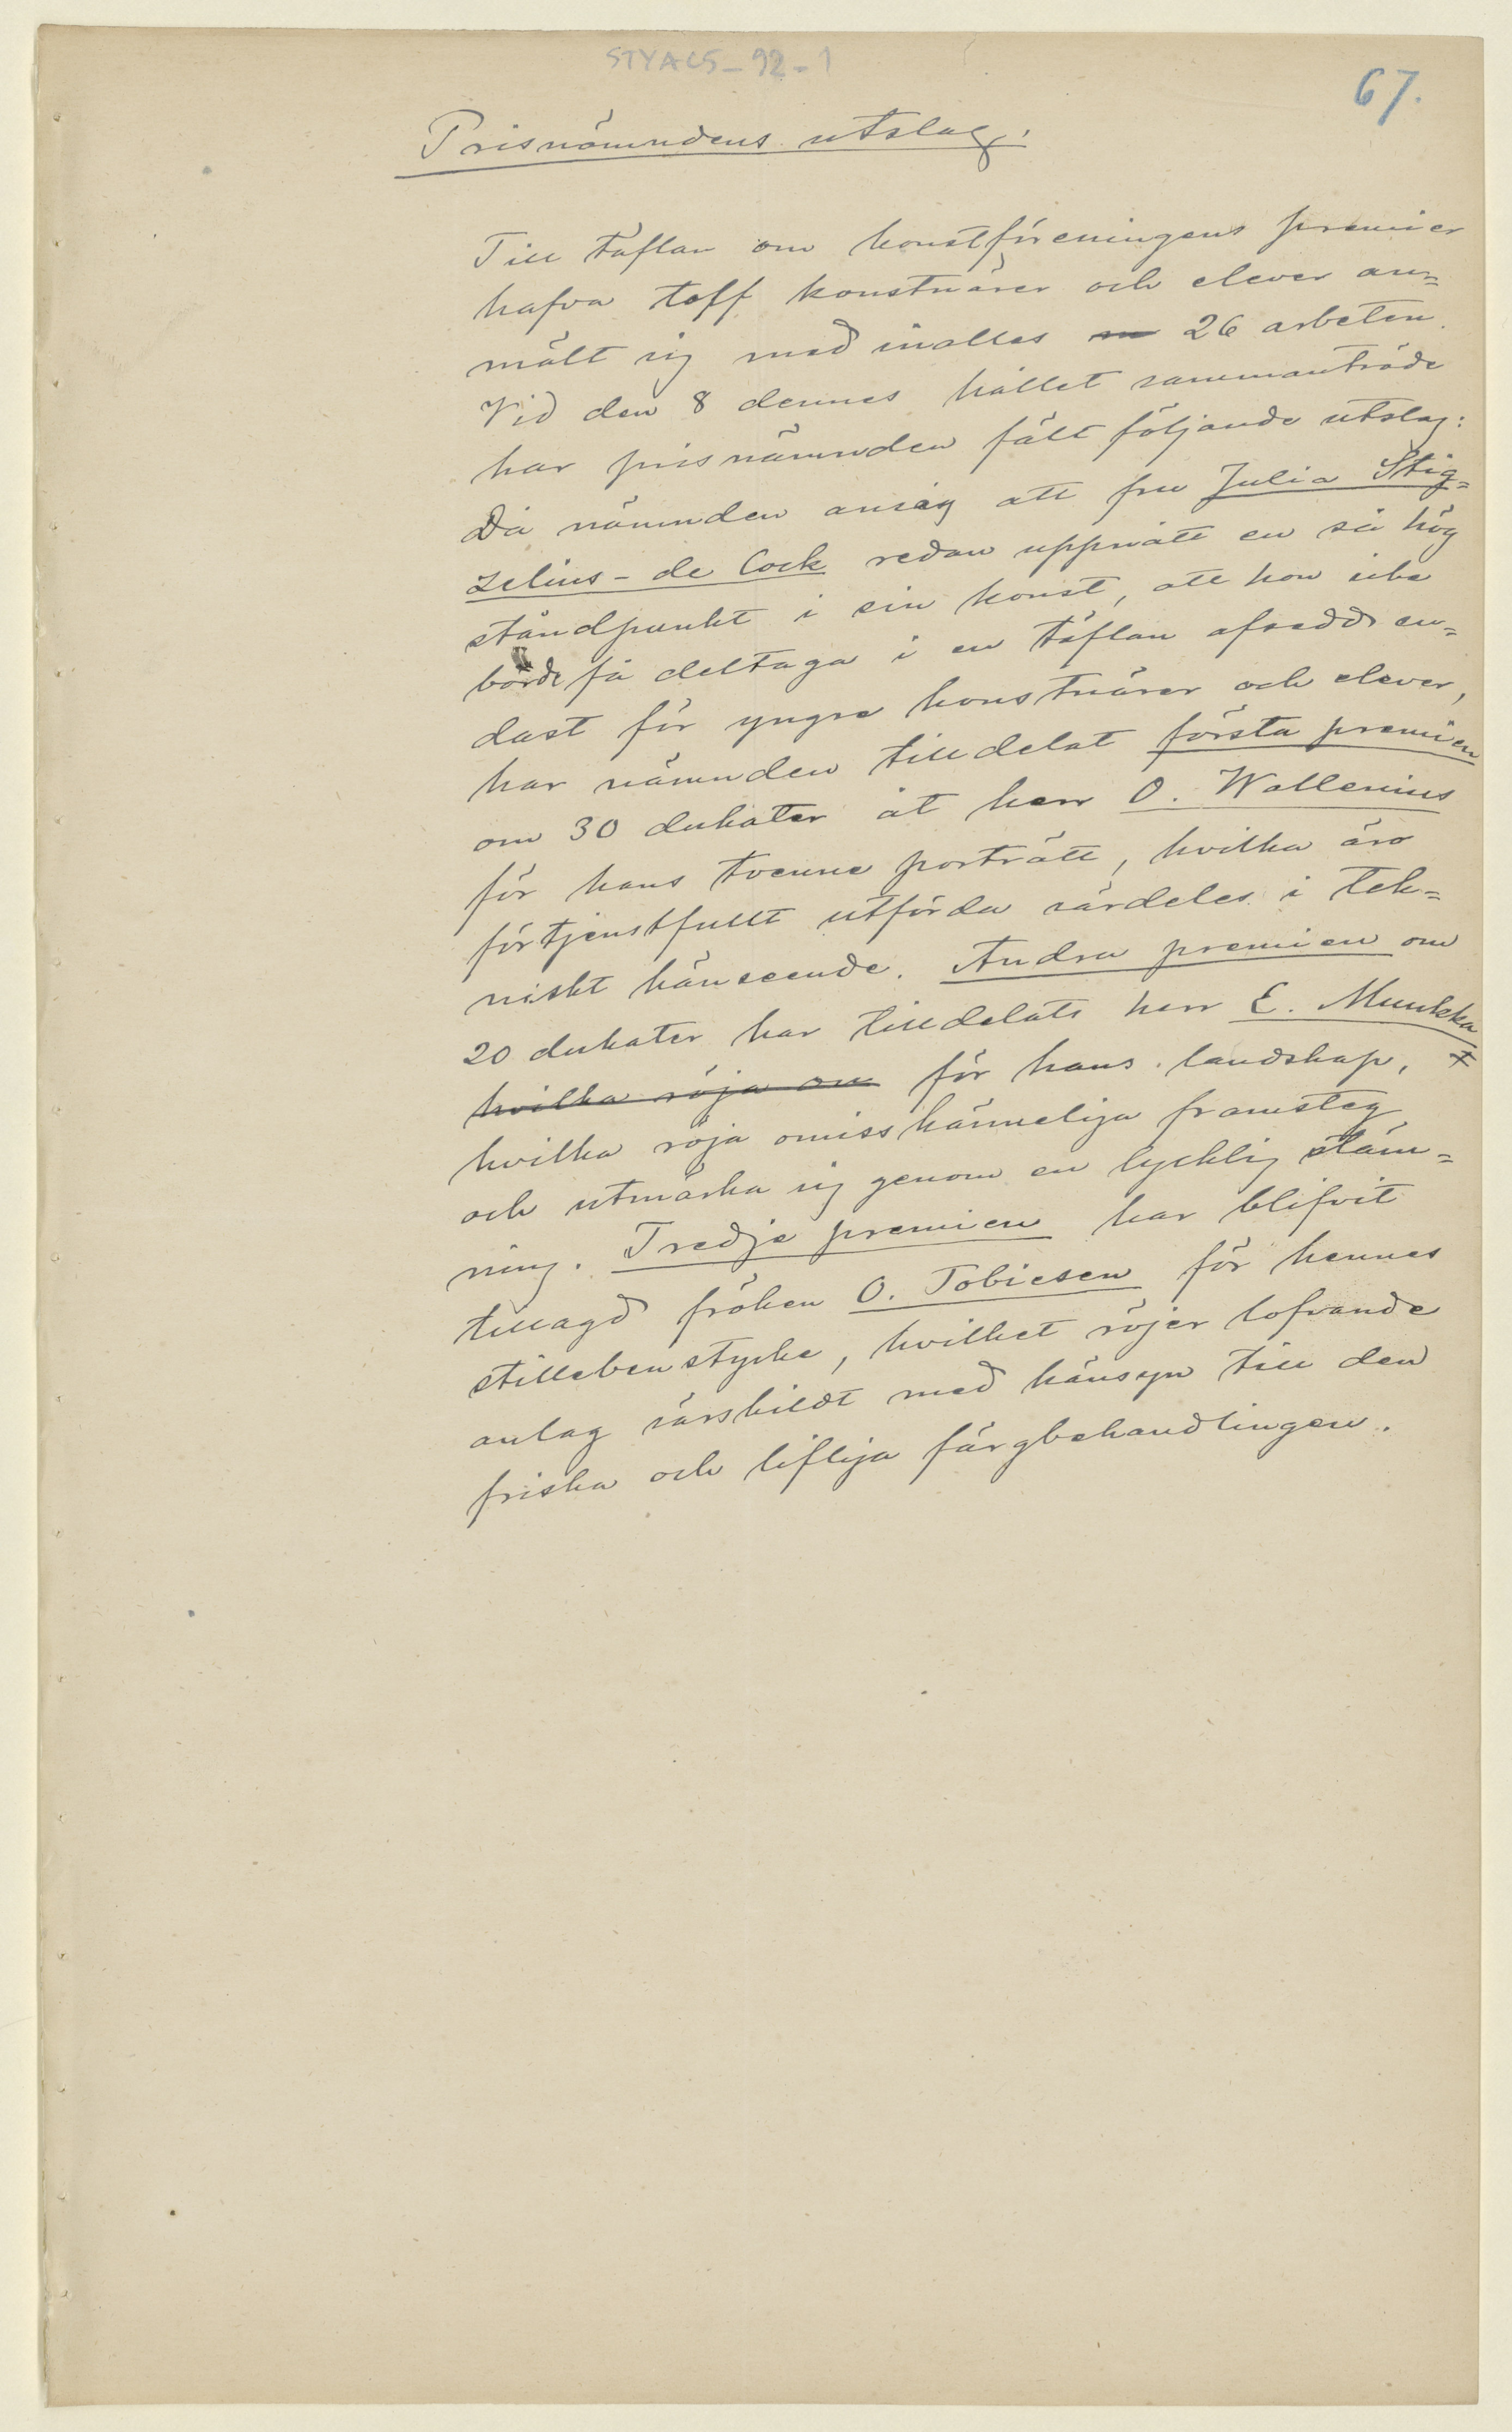 STYACS-92-1
67.
Prisnämndens utslag.
Till täflan om konstföreningens premier
hafva tolf konstnärer och elever an=
mält sig med inalles 26 arbeten.
Vid den 8 dennes hållet sammanträde
har prisnämnden fält följande utslag:
Då nämnden ansåg att fru Julia Stig=
zelius - de Cock redan uppnått en så hög
ståndpunkt i sin konst, att hon icke
borde få deltaga i en täflan afsedd en=
dast för yngre konstnärer och elever,
har nämnden tilldelat första premien
om 30 dukater åt herr O. Wallenius
för hans tvenne porträtt, hvilka äro
förtjenstfullt utförda särdeles i tek=
niskt hänseende. Andra premien om
20 dukater har tilldelats herr E. Muukka
hvilka röja om för hans landskap, ≠
hvilka röja omisskänneliga framsteg
och utmärka sig genom en lycklig stäm=
ning. Tredje premien har blifvit
tillagd fröken O. Tobiesen för hennes
stillebenstycke, hvilket röjer lofvande
anlag särskildt med hänsyn till den
friska och lifliga färgbehandlingen.